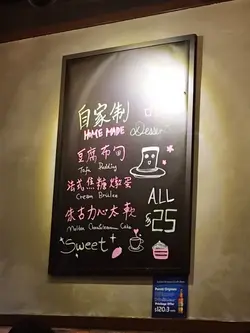 自家制
HOME MADE Dessert
豆腐布甸
Tofu Pudding
法式焦糖燉蛋
Cream Brulee
朱古力心太軟
Molten Chocolate Cake
ALL
$25
Sweet
$120.3